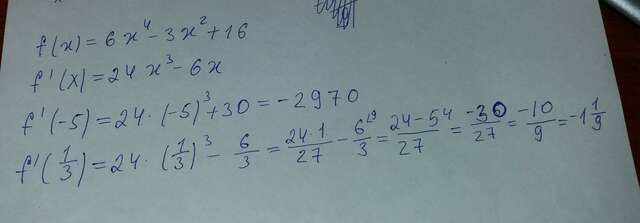 f(x) = 6x⁴ - 3x² + 16
f'(x) = 24x³ - 6x
f'(-5) = 24 · (-5)³ + 30 = -2970
f'(1/3) = 24 · (1/3)³ - 6/3 = 24·1/27 - 6^{\9}/3 = 24-54/27 = -30/27 = -10/9 = -1 1/9